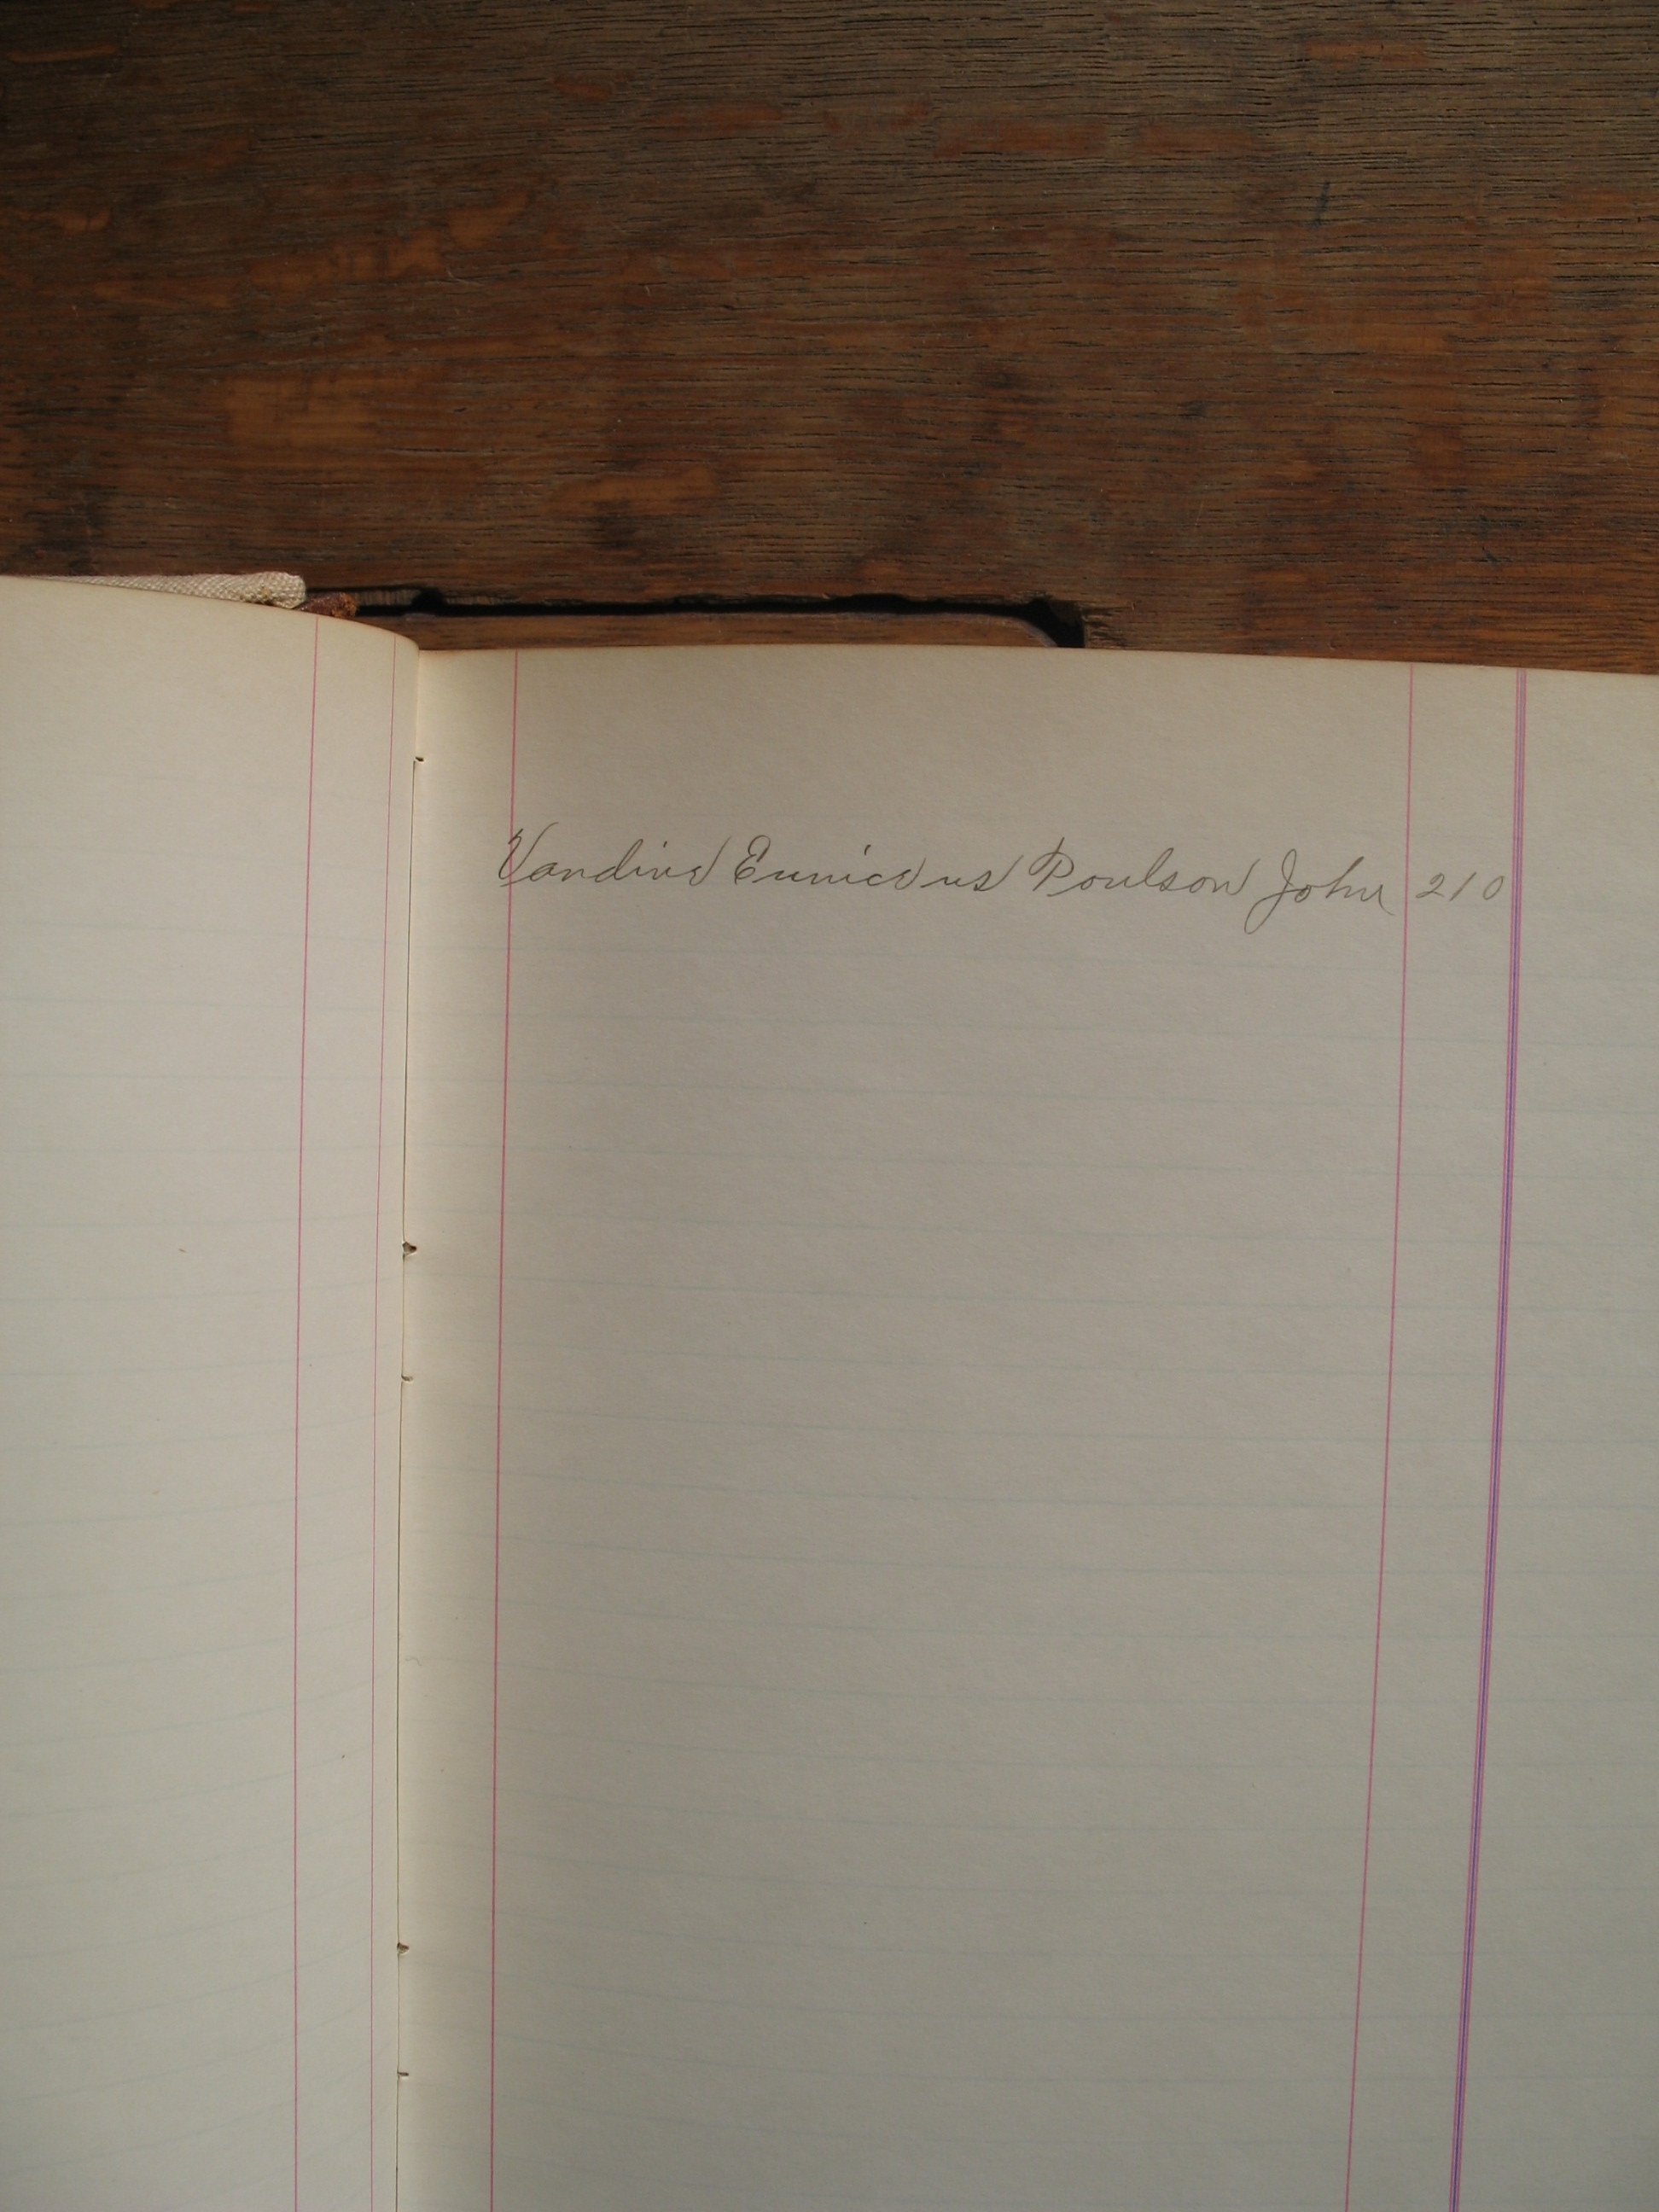 Vandine Eunice vs Poulson John 210